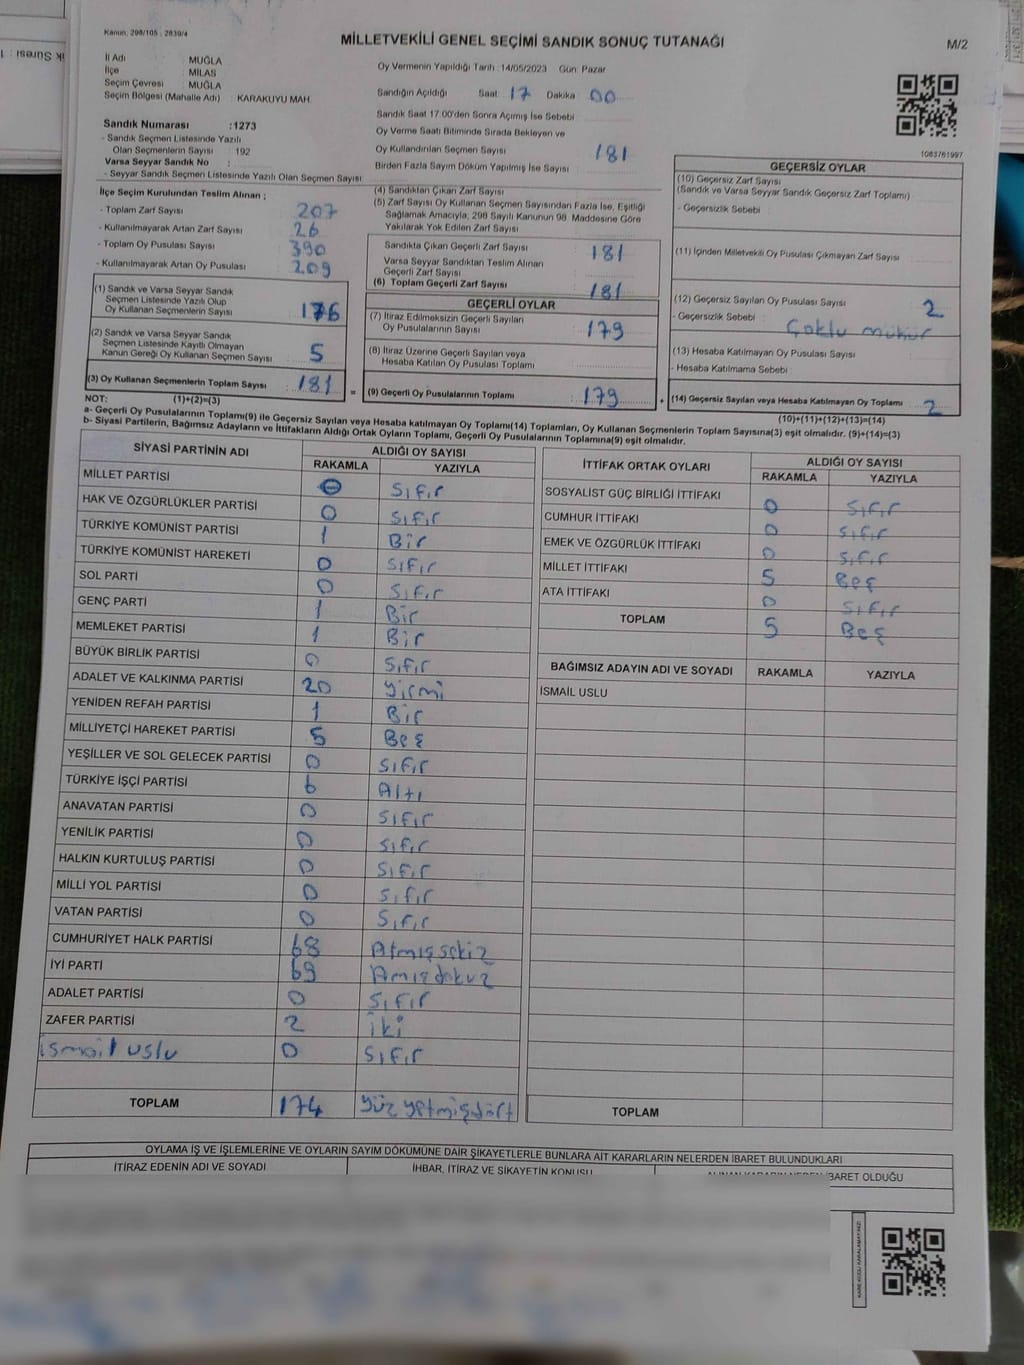 Kanun, 298/105 : 2839/4
MİLLETVEKİLİ GENEL SEÇİMİ SANDIK SONUÇ TUTANAĞI
M/2
İl Adı : MUĞLA
İlçe : MİLAS
Seçim Çevresi : MUĞLA
Seçim Bölgesi (Mahalle Adı) : KARAKUYU MAH.
Oy Vermenin Yapıldığı Tarih :14/05/2023 Gün: Pazar
Sandığın Açıldığı Saat: 17 Dakika 00
Sandık Saat 17:00'den Sonra Açılmış İse Sebebi
Oy Verme Saati Bitiminde Sırada Bekleyen ve
Oy Kullandırılan Seçmen Sayısı 181
Birden Fazla Sayım Döküm Yapılmış İse Sayısı
Sandık Numarası :1273
- Sandık Seçmen Listesinde Yazılı
Olan Seçmenlerin Sayısı : 192
Varsa Seyyar Sandık No :
- Seyyar Sandık Seçmen Listesinde Yazılı Olan Seçmen Sayısı
İlçe Seçim Kurulundan Teslim Alınan ;
- Toplam Zarf Sayısı 207
- Kullanılmayarak Artan Zarf Sayısı 26
- Toplam Oy Pusulası Sayısı 390
- Kullanılmayarak Artan Oy Pusulası 209
(1) Sandık ve Varsa Seyyar Sandık
Seçmen Listesinde Yazılı Olup
Oy Kullanan Seçmenlerin Sayısı : 176
(2) Sandık ve Varsa Seyyar Sandık
Seçmen Listesinde Kayıtlı Olmayan
Kanun Gereği Oy Kullanan Seçmen Sayısı : 5
(3) Oy Kullanan Seçmenlerin Toplam Sayısı : 181
(4) Sandıktan Çıkan Zarf Sayısı
(5) Zarf Sayısı Oy Kullanan Seçmen Sayısından Fazla İse, Eşitliği
Sağlamak Amacıyla, 298 Sayılı Kanunun 98. Maddesine Göre
Yakılarak Yok Edilen Zarf Sayısı
Sandıkta Çıkan Geçerli Zarf Sayısı 181
Varsa Seyyar Sandıktan Teslim Alınan
Geçerli Zarf Sayısı
(6) Toplam Geçerli Zarf Sayısı 181
GEÇERLİ OYLAR
(7) İtiraz Edilmeksizin Geçerli Sayılan
Oy Pusulalarının Sayısı : 179
(8) İtiraz Üzerine Geçerli Sayılan veya
Hesaba Katılan Oy Pusulası Toplamı
= (9) Geçerli Oy Pusulalarının Toplamı : 179 +
1083761997
GEÇERSİZ OYLAR
(10) Geçersiz Zarf Sayısı
(Sandık ve Varsa Seyyar Sandık Geçersiz Zarf Toplamı)
- Geçersizlik Sebebi :
(11) İçinden Milletvekili Oy Pusulası Çıkmayan Zarf Sayısı
(12) Geçersiz Sayılan Oy Pusulası Sayısı : 2
- Geçersizlik Sebebi : Çoklu mühür
(13) Hesaba Katılmayan Oy Pusulası Sayısı
- Hesaba Katılmama Sebebi :
(14) Geçersiz Sayılan veya Hesaba Katılmayan Oy Toplamı 2
NOT: (1)+(2)=(3) (10)+(11)+(12)+(13)=(14)
a- Geçerli Oy Pusulalarının Toplamı(9) ile Geçersiz Sayılan veya Hesaba katılmayan Oy Toplamı(14) Toplamları, Oy Kullanan Seçmenlerin Toplam Sayısına(3) eşit olmalıdır. (9)+(14)=(3)
b- Siyasi Partilerin, Bağımsız Adayların ve İttifakların Aldığı Ortak Oyların Toplamı, Geçerli Oy Pusulalarının Toplamına(9) eşit olmalıdır.
SİYASİ PARTİNİN ADI ALDIĞI OY SAYISI
RAKAMLA YAZIYLA
MİLLET PARTİSİ 0 Sıfır
HAK VE ÖZGÜRLÜKLER PARTİSİ 0 Sıfır
TÜRKİYE KOMÜNİST PARTİSİ 1 Bir
TÜRKİYE KOMÜNİST HAREKETİ 0 Sıfır
SOL PARTİ 0 Sıfır
GENÇ PARTİ 1 Bir
MEMLEKET PARTİSİ 1 Bir
BÜYÜK BİRLİK PARTİSİ 0 Sıfır
ADALET VE KALKINMA PARTİSİ 20 Yirmi
YENİDEN REFAH PARTİSİ 1 Bir
MİLLİYETÇİ HAREKET PARTİSİ 5 Beş
YEŞİLLER VE SOL GELECEK PARTİSİ 0 Sıfır
TÜRKİYE İŞÇİ PARTİSİ 6 Altı
ANAVATAN PARTİSİ 0 Sıfır
YENİLİK PARTİSİ 0 Sıfır
HALKIN KURTULUŞ PARTİSİ 0 Sıfır
MİLLİ YOL PARTİSİ 0 Sıfır
VATAN PARTİSİ 0 Sıfır
CUMHURİYET HALK PARTİSİ 68 Atmışsekiz
İYİ PARTİ 69 Amışdokuz
ADALET PARTİSİ 0 Sıfır
ZAFER PARTİSİ 2 İki
ismail uslu 0 Sıfır
TOPLAM 174 Yüz yetmişdört
İTTİFAK ORTAK OYLARI ALDIĞI OY SAYISI
RAKAMLA YAZIYLA
SOSYALİST GÜÇ BİRLİĞİ İTTİFAKI 0 Sıfır
CUMHUR İTTİFAKI 0 Sıfır
EMEK VE ÖZGÜRLÜK İTTİFAKI 0 Sıfır
MİLLET İTTİFAKI 5 Beş
ATA İTTİFAKI 0 Sıfır
TOPLAM 5 Beş
BAĞIMSIZ ADAYIN ADI VE SOYADI RAKAMLA YAZIYLA
İSMAİL USLU
TOPLAM
OYLAMA İŞ VE İŞLEMLERİNE VE OYLARIN SAYIM DÖKÜMÜNE DAİR ŞİKAYETLERLE BUNLARA AİT KARARLARIN NELERDEN İBARET BULUNDUKLARI
İTİRAZ EDENİN ADI VE SOYADI İHBAR, İTİRAZ VE ŞİKAYETİN KONUSU ALINAN KARARIN NEDEN İBARET OLDUĞU